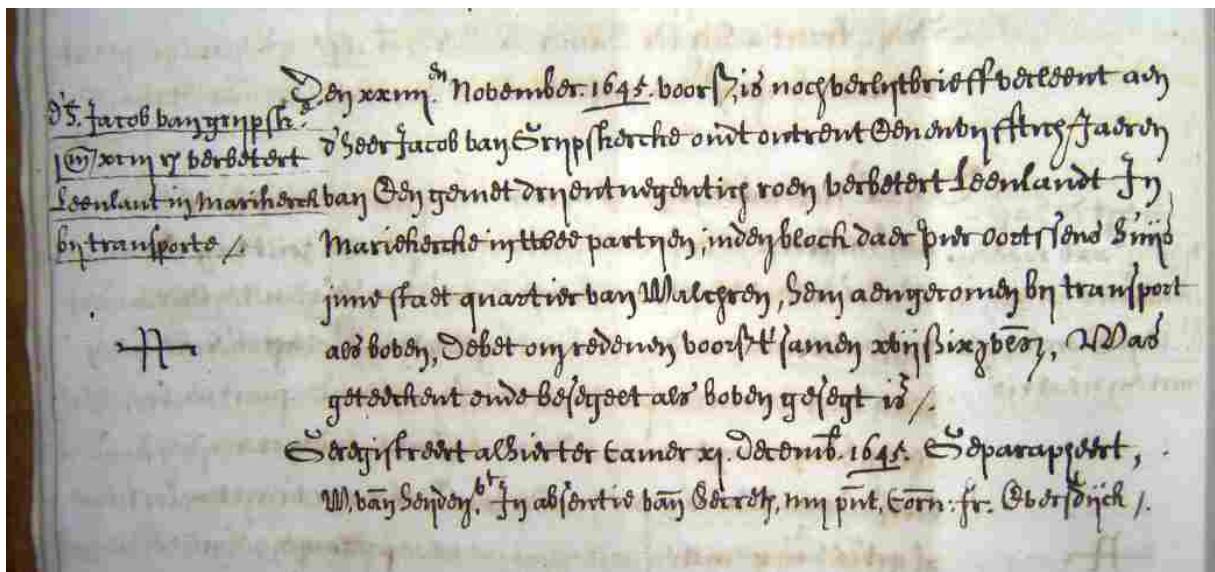 d'h. Jacob van grijpsk.
xciij r. verbetert
Leenlant in Marikerck
bij transporte /.
Den xxiiij.en November. 1645. voorsz, is noch verlijtbrieff verleent aen
d'heer Jacob van Grijpskercke oudt ontrent Eenenvijfftich Jaeren
van Een gemet drijentnegentich roen verbetert Leenlandt In
Mariekercke in twee partijen, inden bloch daer pier oortssens huijs
inne staet quartier van Walchren, hem aengecomen bij transport
als boven, Debet om redenen voorsz. t'samen Was
geteeckent ende besegelt als boven gesegt is /.
Geregistreert alhier ter Camer xj. Decemb. 1645. Geparapheert,
W. van heijden, vt. In absentie van Secretz, mij p̄nt, Corn: fr. Everdijck /.